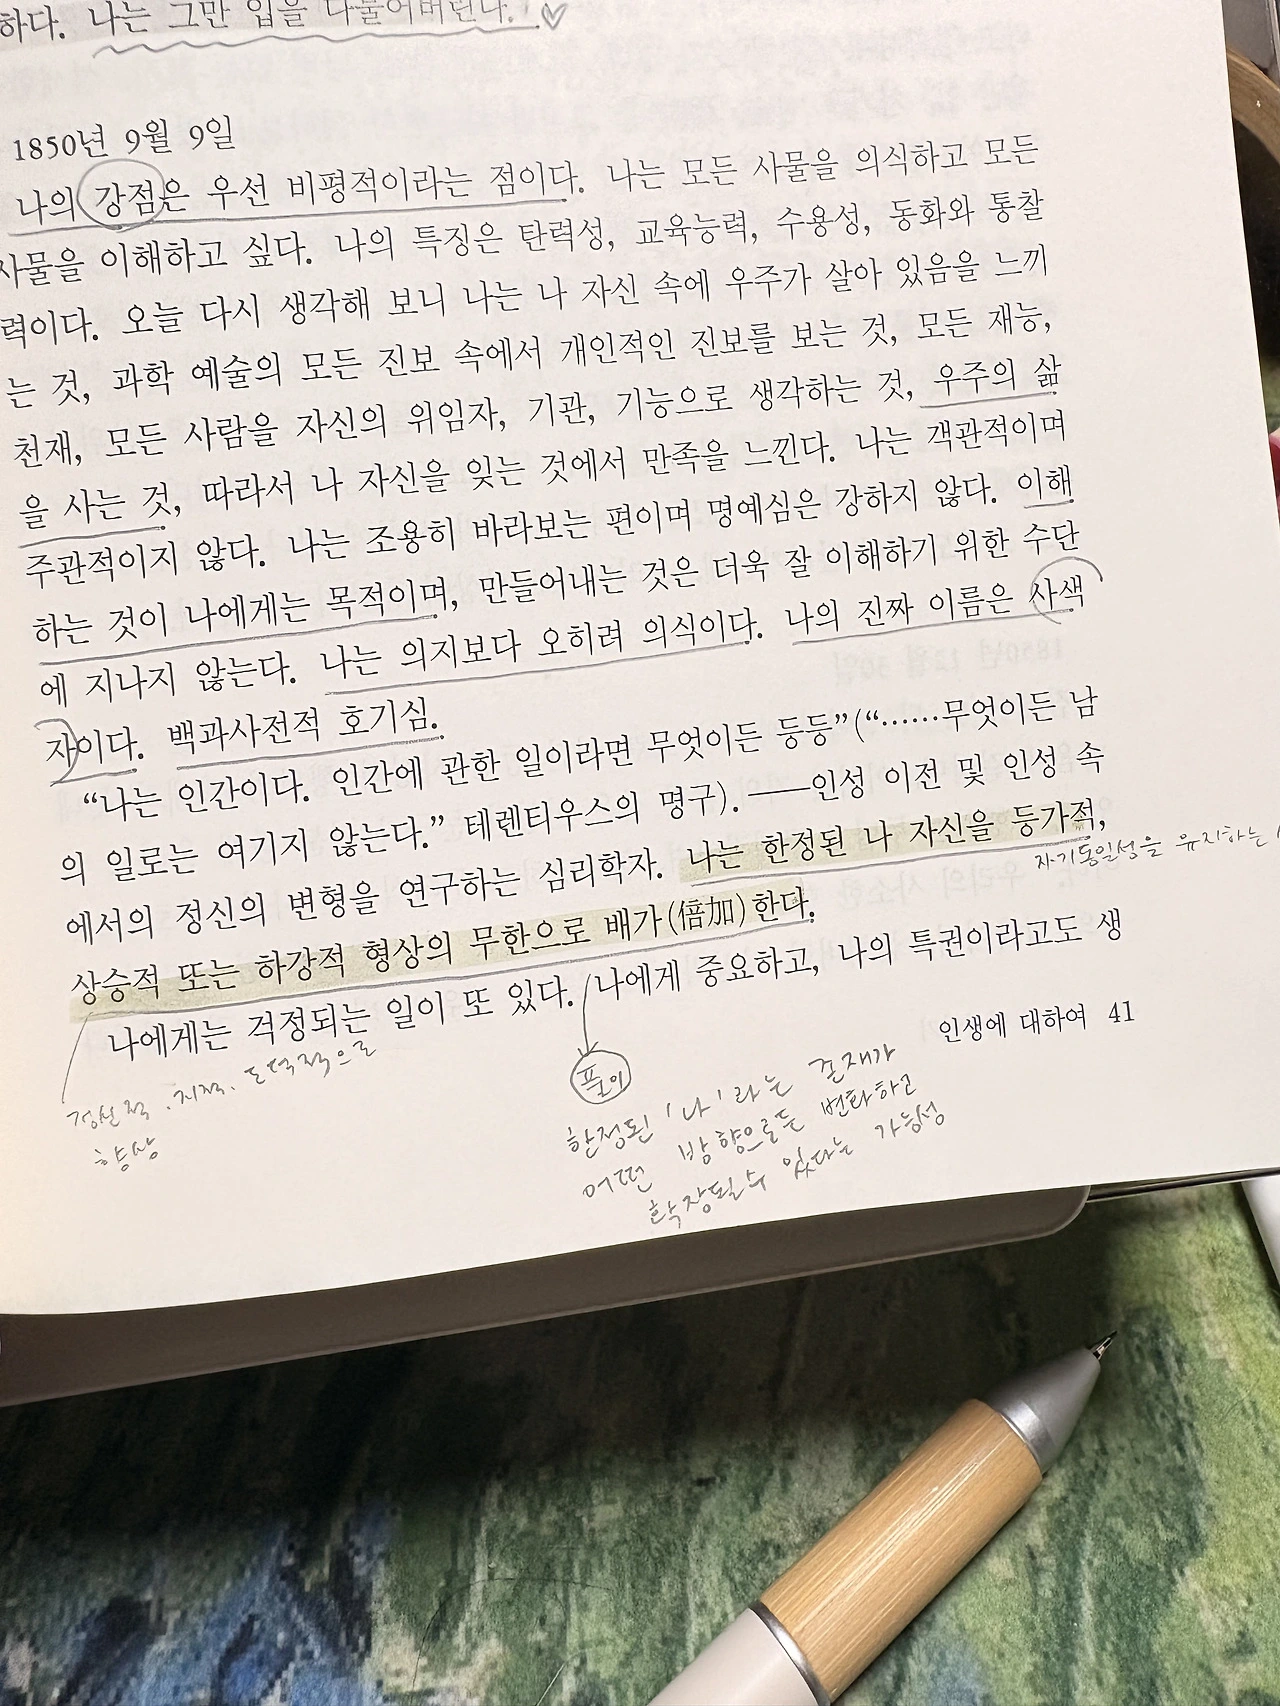 하다. 나는 그만 입을 다물어버린다. ♡
1850년 9월 9일
나의 강점은 우선 비평적이라는 점이다. 나는 모든 사물을 의식하고 모든
사물을 이해하고 싶다. 나의 특징은 탄력성, 교육능력, 수용성, 동화와 통찰
력이다. 오늘 다시 생각해 보니 나는 나 자신 속에 우주가 살아 있음을 느끼
는 것, 과학 예술의 모든 진보 속에서 개인적인 진보를 보는 것, 모든 재능,
천재, 모든 사람을 자신의 위임자, 기관, 기능으로 생각하는 것, 우주의 삶
을 사는 것, 따라서 나 자신을 잊는 것에서 만족을 느낀다. 나는 객관적이며
주관적이지 않다. 나는 조용히 바라보는 편이며 명예심은 강하지 않다. 이해
하는 것이 나에게는 목적이며, 만들어내는 것은 더욱 잘 이해하기 위한 수단
에 지나지 않는다. 나는 의지보다 오히려 의식이다. 나의 진짜 이름은 사색
자이다. 백과사전적 호기심.
“나는 인간이다. 인간에 관한 일이라면 무엇이든 등등”(“……무엇이든 남
의 일로는 여기지 않는다.” 테렌티우스의 명구). ──인성 이전 및 인성 속
에서의 정신의 변형을 연구하는 심리학자. 나는 한정된 나 자신을 등가적,
자기동일성을 유지하는
상승적 또는 하강적 형상의 무한으로 배가(倍加)한다.
나에게는 걱정되는 일이 또 있다. 나에게 중요하고, 나의 특권이라고도 생
인생에 대하여 41
정신적. 지적. 도덕적으로
향상
풀이
한정된 '나'라는 존재가
어떤 방향으로든 변화하고
확장될 수 있다는 가능성